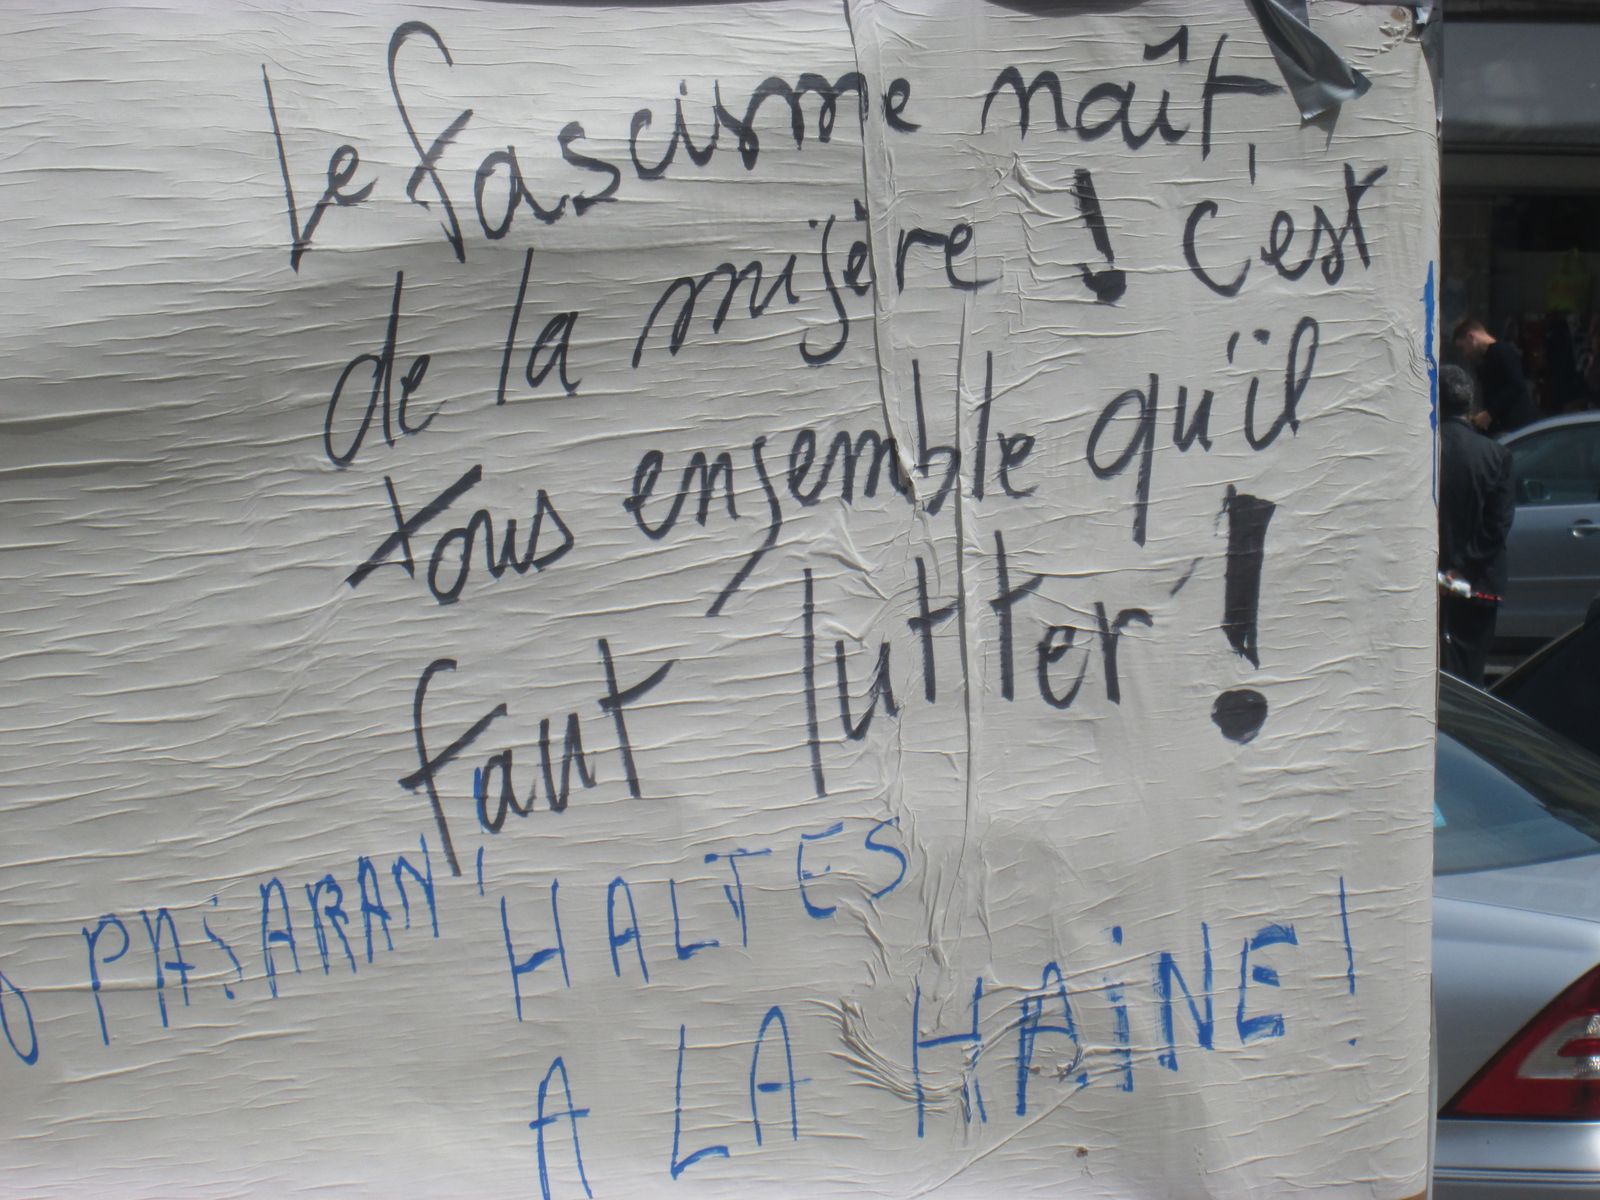 Le fascisme naît,
de la misère ! c'est
tous ensemble qu'il
faut lutter !
O PASARAN ! HALTES
A LA HAINE !